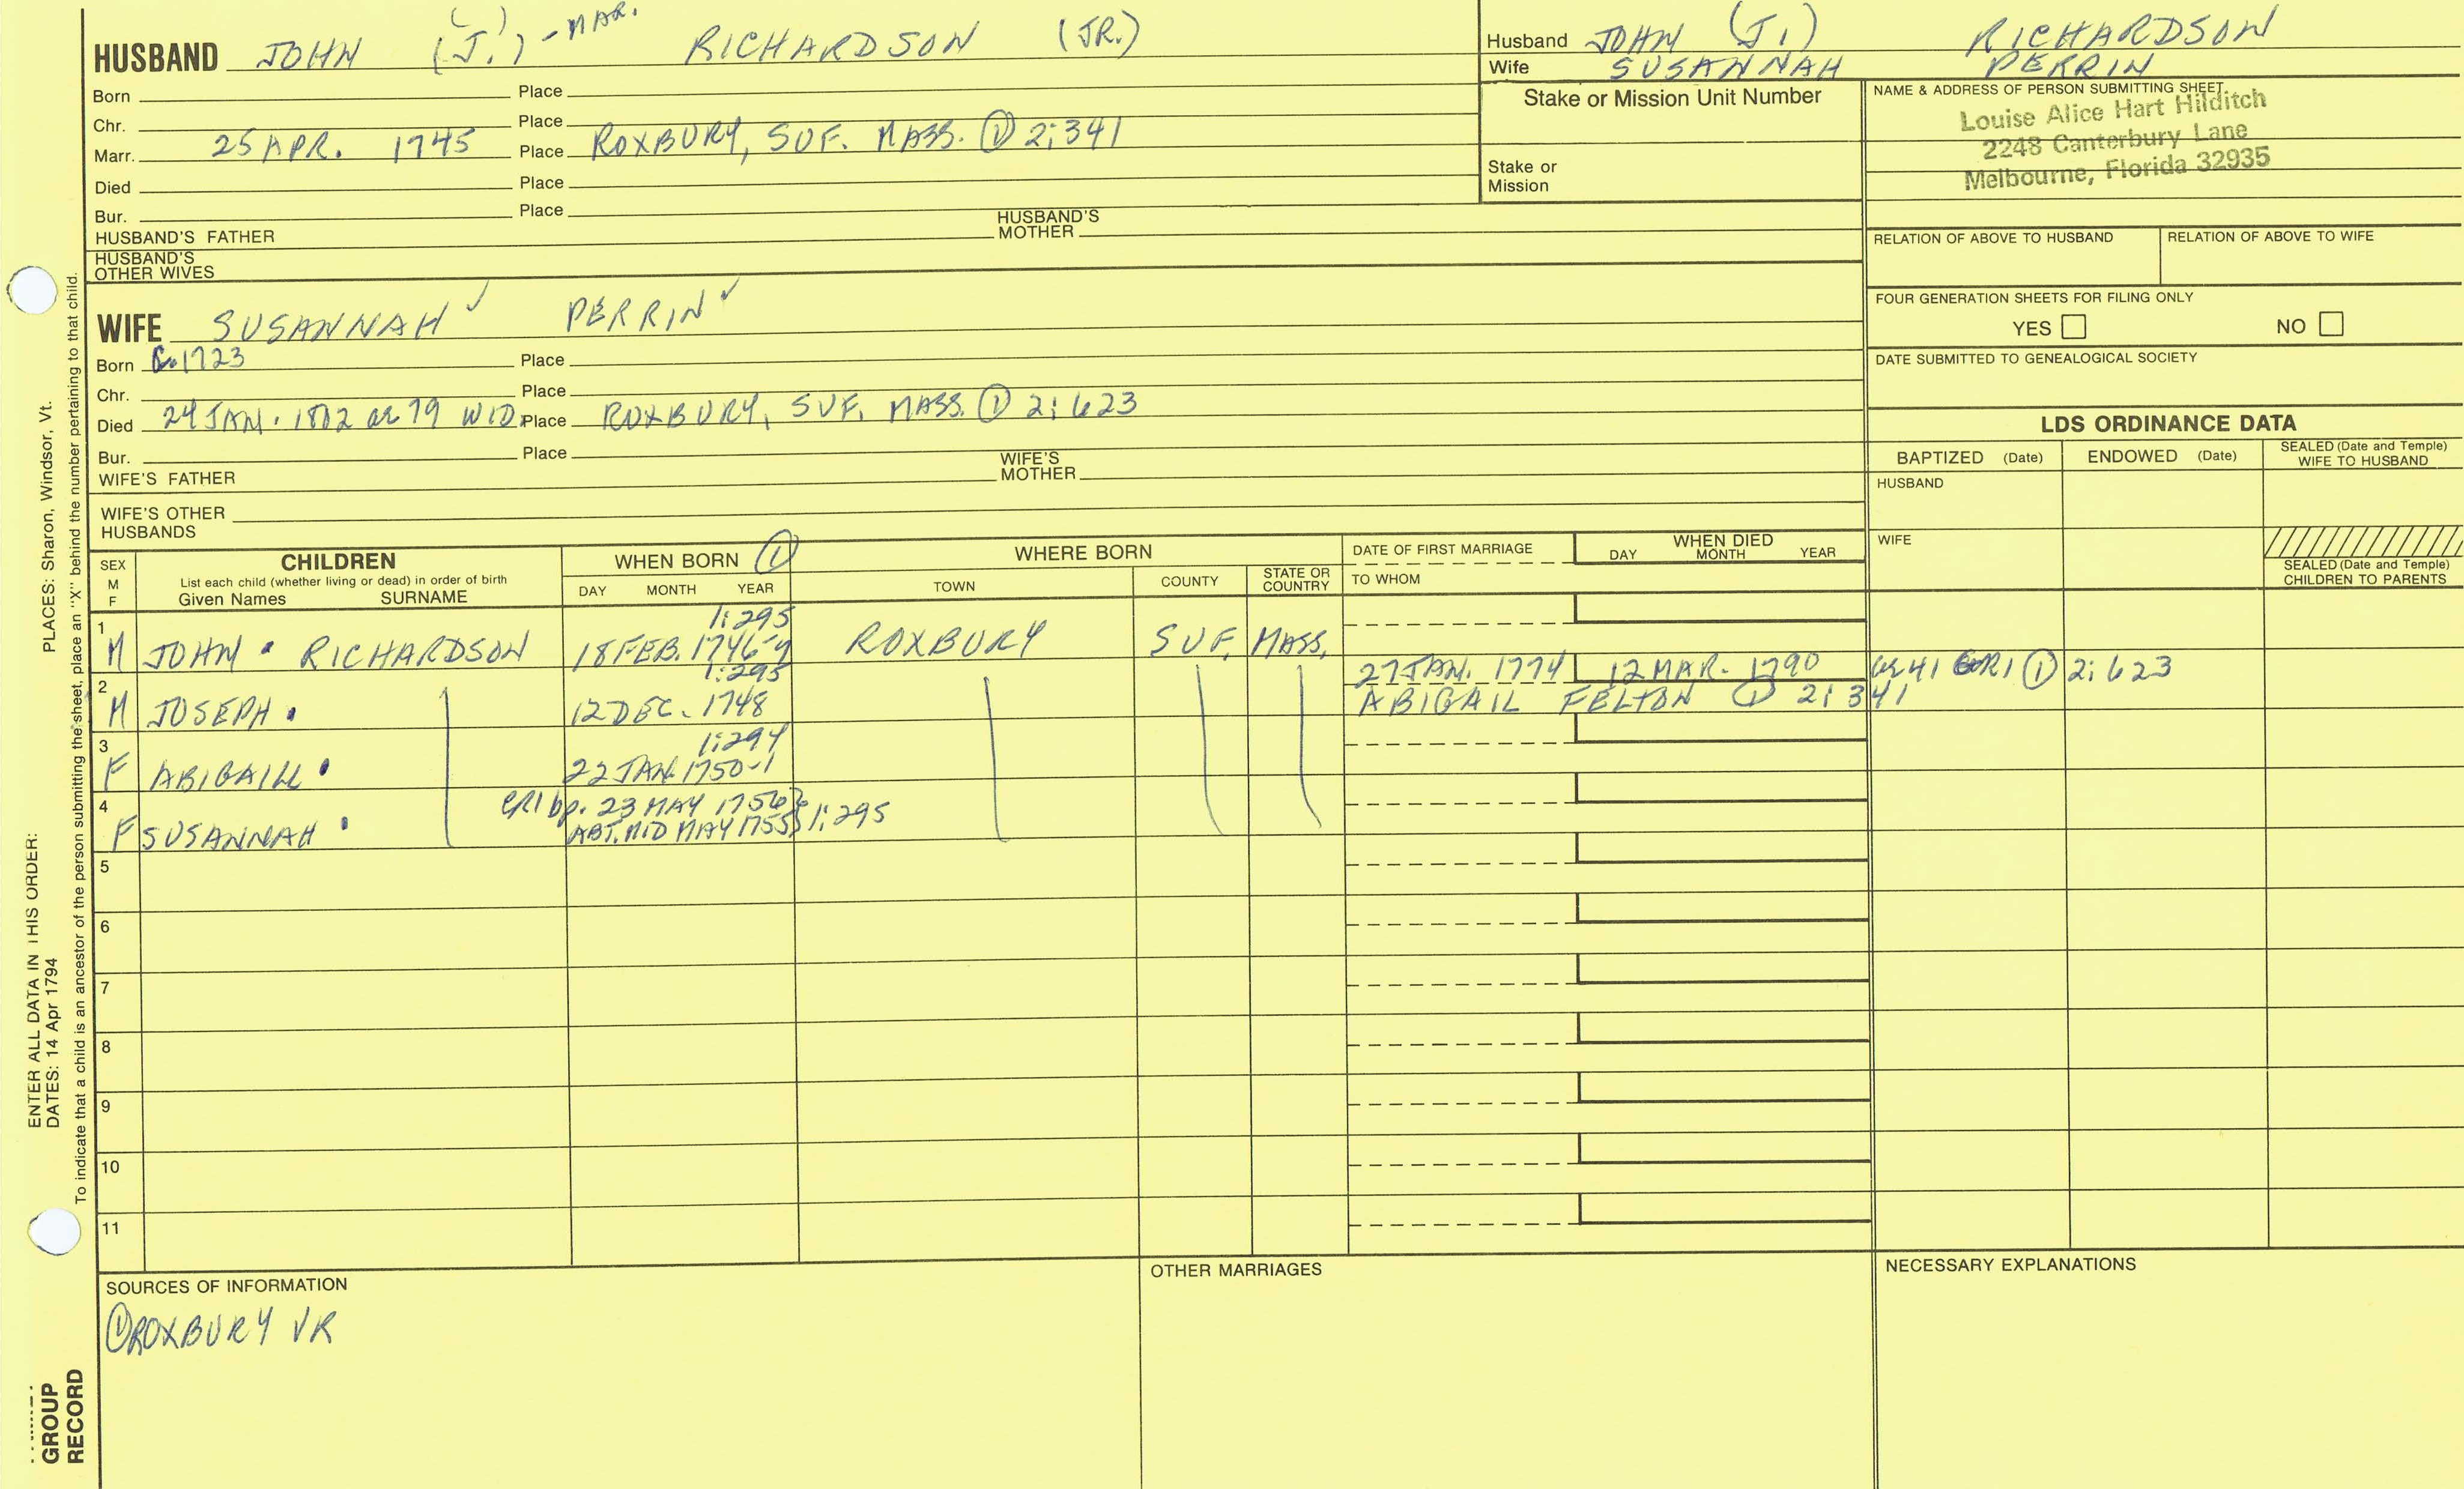 ( ) - MAR.
HUSBAND JOHN (J.) RICHARDSON (JR.)
Born Place
Chr. Place
Marr. 25 APR. 1745 Place ROXBURY, SUF. MASS. ① 2:341
Died Place
Bur. Place
HUSBAND'S FATHER HUSBAND'S MOTHER
HUSBAND'S OTHER WIVES
WIFE SUSANNAH ✓ PERRIN ✓
Born C.1723 Place
Chr. Place
Died 24 JAN. 1802 ae 79 WID. Place ROXBURY, SUF. MASS. ① 2:623
Bur. Place
WIFE'S FATHER WIFE'S MOTHER
WIFE'S OTHER HUSBANDS
Husband JOHN (J.) RICHARDSON
Wife SUSANNAH PERRIN
Stake or Mission Unit Number
Stake or Mission
NAME & ADDRESS OF PERSON SUBMITTING SHEET
Louise Alice Hart Hilditch
2248 Canterbury Lane
Melbourne, Florida 32935
RELATION OF ABOVE TO HUSBAND RELATION OF ABOVE TO WIFE
FOUR GENERATION SHEETS FOR FILING ONLY
YES NO
DATE SUBMITTED TO GENEALOGICAL SOCIETY
LDS ORDINANCE DATA
BAPTIZED (Date) ENDOWED (Date) SEALED (Date and Temple) WIFE TO HUSBAND
HUSBAND
WIFE
SEALED (Date and Temple) CHILDREN TO PARENTS
SEX M F
CHILDREN
List each child (whether living or dead) in order of birth
Given Names SURNAME
WHEN BORN ①
DAY MONTH YEAR
WHERE BORN
TOWN COUNTY STATE OR COUNTRY
DATE OF FIRST MARRIAGE
TO WHOM
WHEN DIED
DAY MONTH YEAR
1:295
1 M JOHN RICHARDSON 18 FEB. 1746- ROXBURY SUF. MASS.
1:295
27 JAN. 1774 12 MAR. 1790 ae 41 GR1 ① 2:623
2 M JOSEPH 12 DEC. 1748 ABIGAIL FELTON ① 2:341
1:294
3 F ABIGAILL 22 JAN. 1750-1
CR1 bp. 23 MAY 1756
4 F SUSANNAH ABT. MID MAY 1755 } 1:295
5
6
7
8
9
10
11
SOURCES OF INFORMATION
① ROXBURY VR
OTHER MARRIAGES
NECESSARY EXPLANATIONS
ENTER ALL DATA IN THIS ORDER:
DATES: 14 Apr 1794
PLACES: Sharon, Windsor, Vt.
To indicate that a child is an ancestor of the person submitting the sheet, place an "X" behind the number pertaining to that child.
GROUP
RECORD